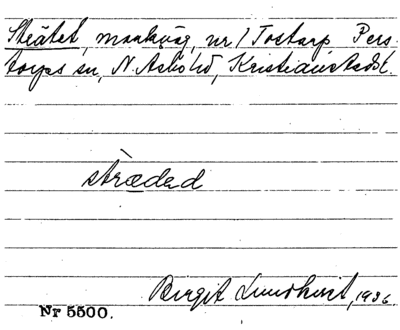 Strätet, markväg, nr 1 Tostarp Pers-
torps sn, N. Åsbo hd, Kristianstads l.
sträded
Birgit Lundkvist, 1936.
Nr 5500.